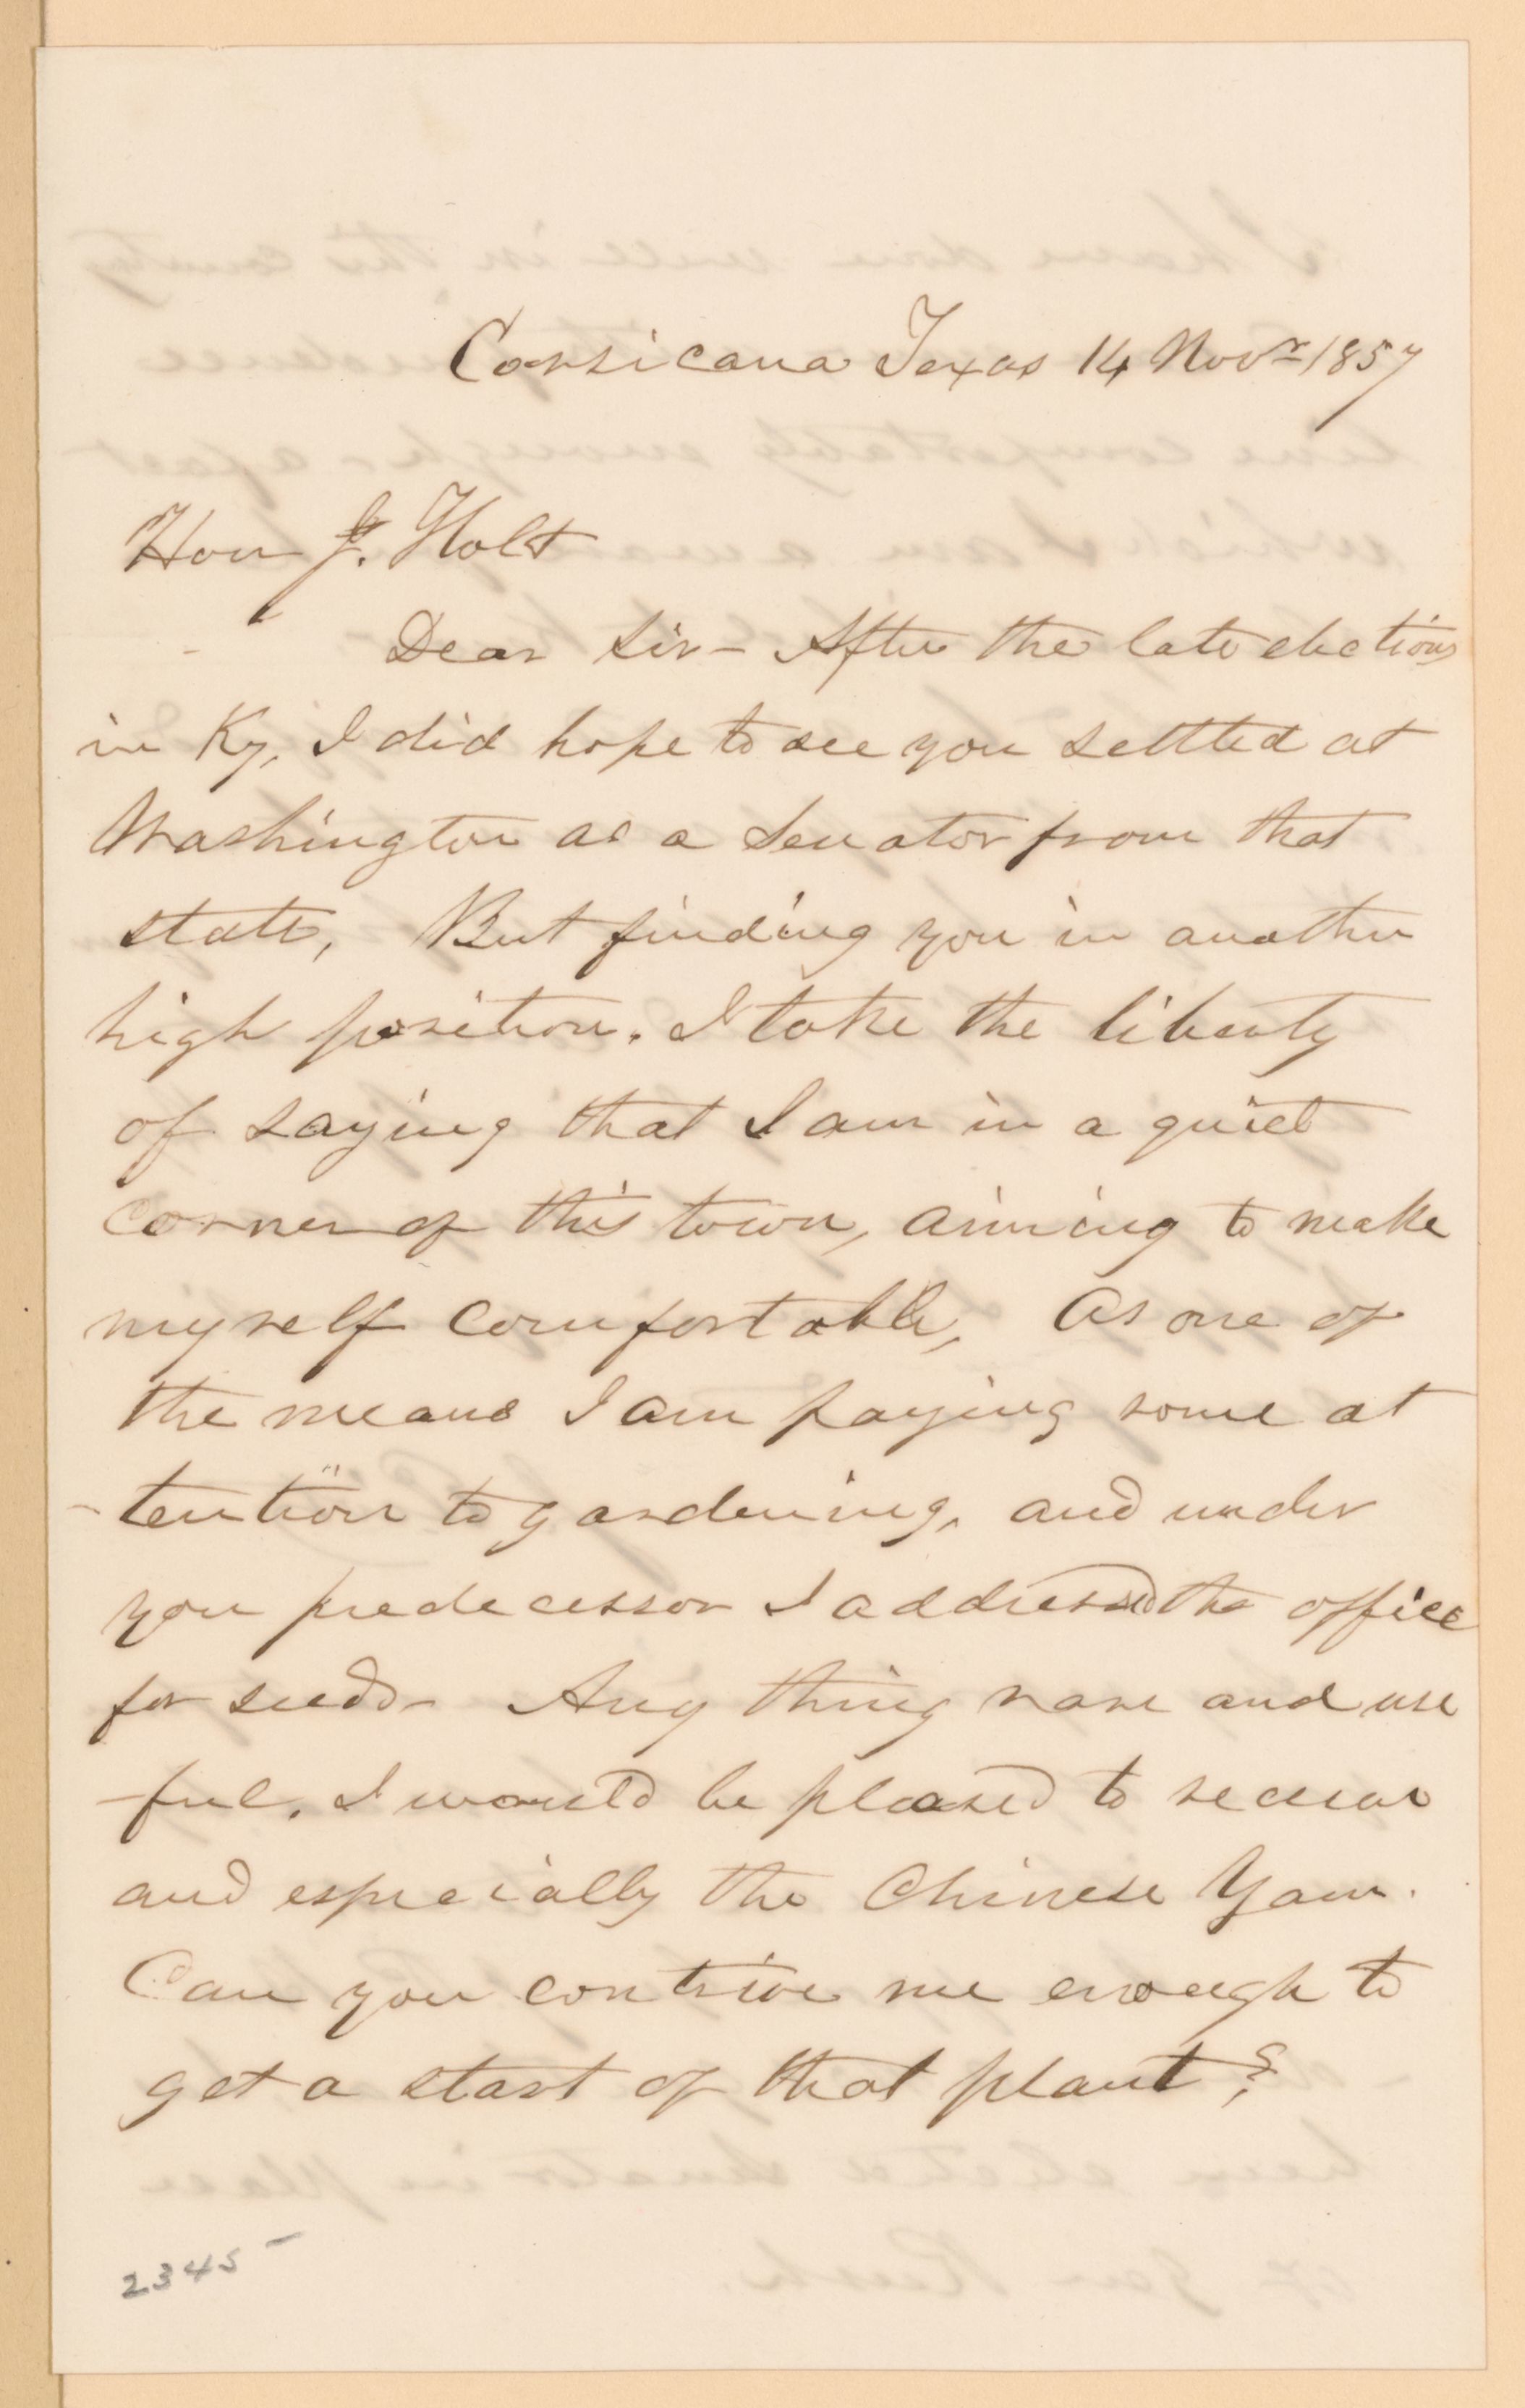 Corsicana Texas 14 Novr 1857
Hon J. Holt
Dear Sir - After the late elections
in Ky, I did hope to see you settled at
Washington as a Senator from that
state, But finding you in another
high position. I take the liberty
of saying that I am in a quiet
corner of this town, aiming to make
myself comfortable, As one of
the means I am paying some at
-tention to gardening, and under
you predecessor I addressed the office
for seeds - Any thing rare and use
-ful. I would be pleased to receive
and especially the Chinese Yam.
Can you contrive me enough to
get a start of that plant?
2345 -